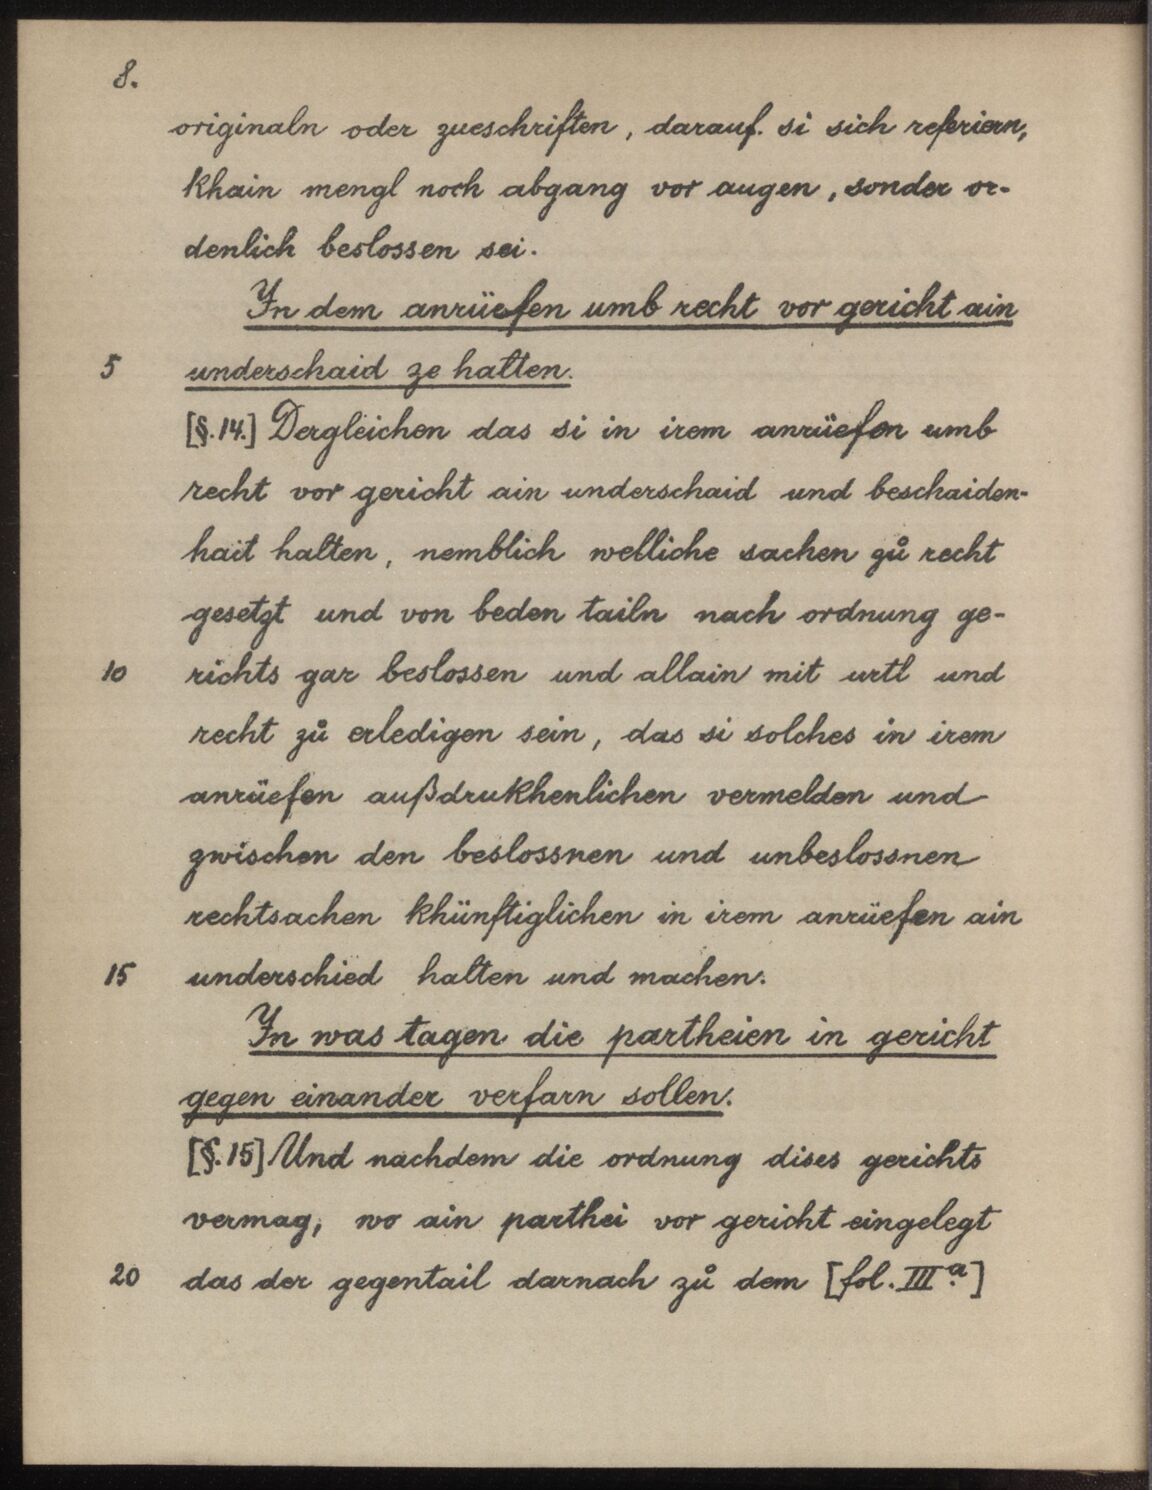 8.
originaln oder zueschriften, darauf. si sich referiern,
khain mengl noch abgang vor augen, sonder or-
denlich beslossen sei.
In dem anrüefen umb recht vor gericht ain
5 underschaid ze halten.
[§.14.] Dergleichen das si in irem anrüefen umb
recht vor gericht ain underschaid und beschaiden-
hait halten, nemblich welliche sachen zů recht
gesetzt und von beden tailn nach ordnung ge-
10 richts gar beslossen und allain mit urtl und
recht zů erledigen sein, das si solches in irem
anrüefen außdrukhenlichen vermelden und
zwischen den beslossnen und unbeslossnen
rechtsachen khünftiglichen in irem anrüefen ain
15 underschied halten und machen.
In was tagen die partheien in gericht
gegen einander verfarn sollen.
[§.15] Und nachdem die ordnung dises gerichts
vermag, wo ain parthei vor gericht eingelegt
20 das der gegentail darnach zů dem [fol. IIIª]